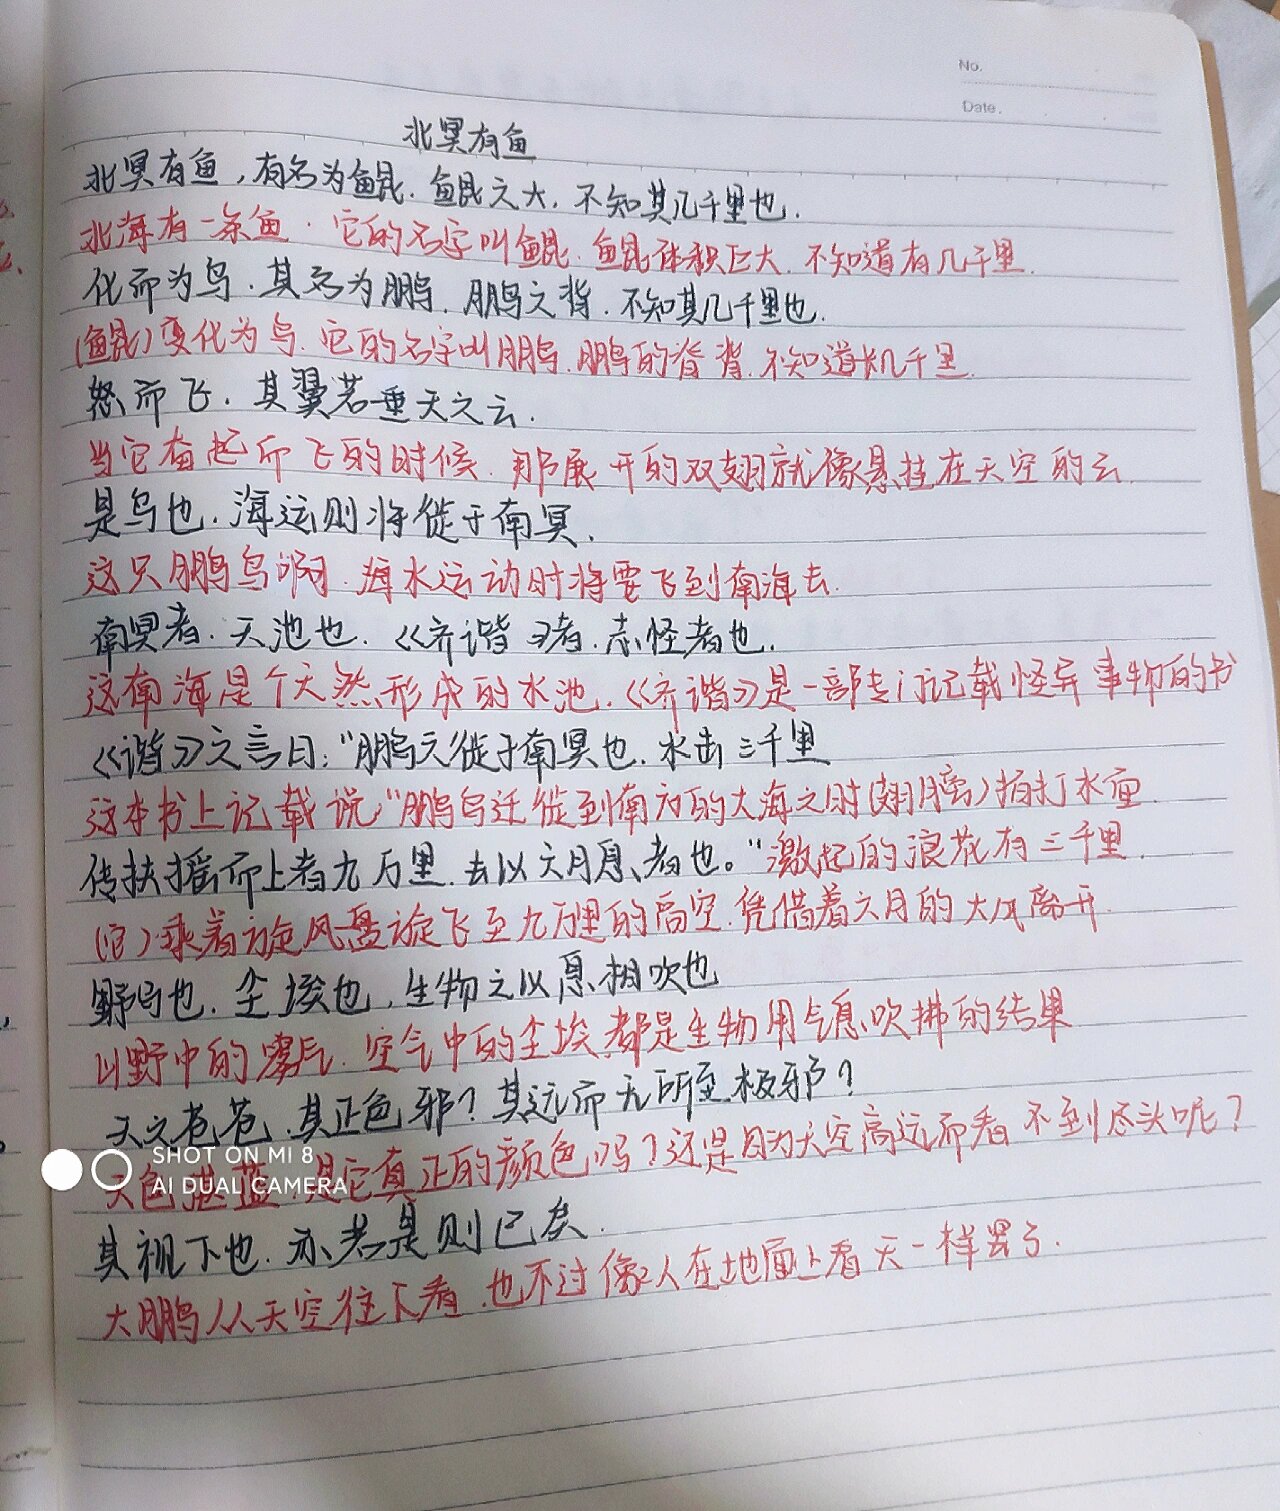 No.
Date.
北冥有鱼
北冥有鱼，有名为鲲．鲲之大．不知其几千里也．
北海有一条鱼．它的名字叫鲲．鲲体积巨大．不知道有几千里．
化而为鸟．其名为鹏．鹏之背．不知其几千里也．
（鲲）变化为鸟．它的名字叫鹏．鹏的脊背．不知道长几千里．
怒而飞．其翼若垂天之云．
当它奋起而飞的时候．那展开的双翅就像悬挂在天空的云．
是鸟也．海运则将徙于南冥．
这只鹏鸟啊．海水运动时将要飞到南海去．
南冥者．天池也．《齐谐》者．志怪者也．
这南海是个天然形成的水池．《齐谐》是一部专门记载怪异事物的书
《谐》之言曰：“鹏之徙于南冥也．水击三千里
这本书上记载说“鹏鸟迁徙到南方的大海之时（翅膀）拍打水面．
传扶摇而上者九万里．去以六月息者也。”激起的浪花有三千里．
（它）乘着旋风盘旋飞至九万里的高空．凭借着六月的大风离开．
野马也．尘埃也．生物之以息相吹也
山野中的雾气．空气中的尘埃．都是生物用气息吹拂的结果
天之苍苍．其正色邪？其远而无所至极邪？
天色湛蓝．是它真正的颜色吗？还是因为天空高远而看不到尽头呢？
SHOT ON MI 8
AI DUAL CAMERA
其视下也．亦若是则已矣．
大鹏从天空往下看．也不过像人在地面上看天一样罢了．